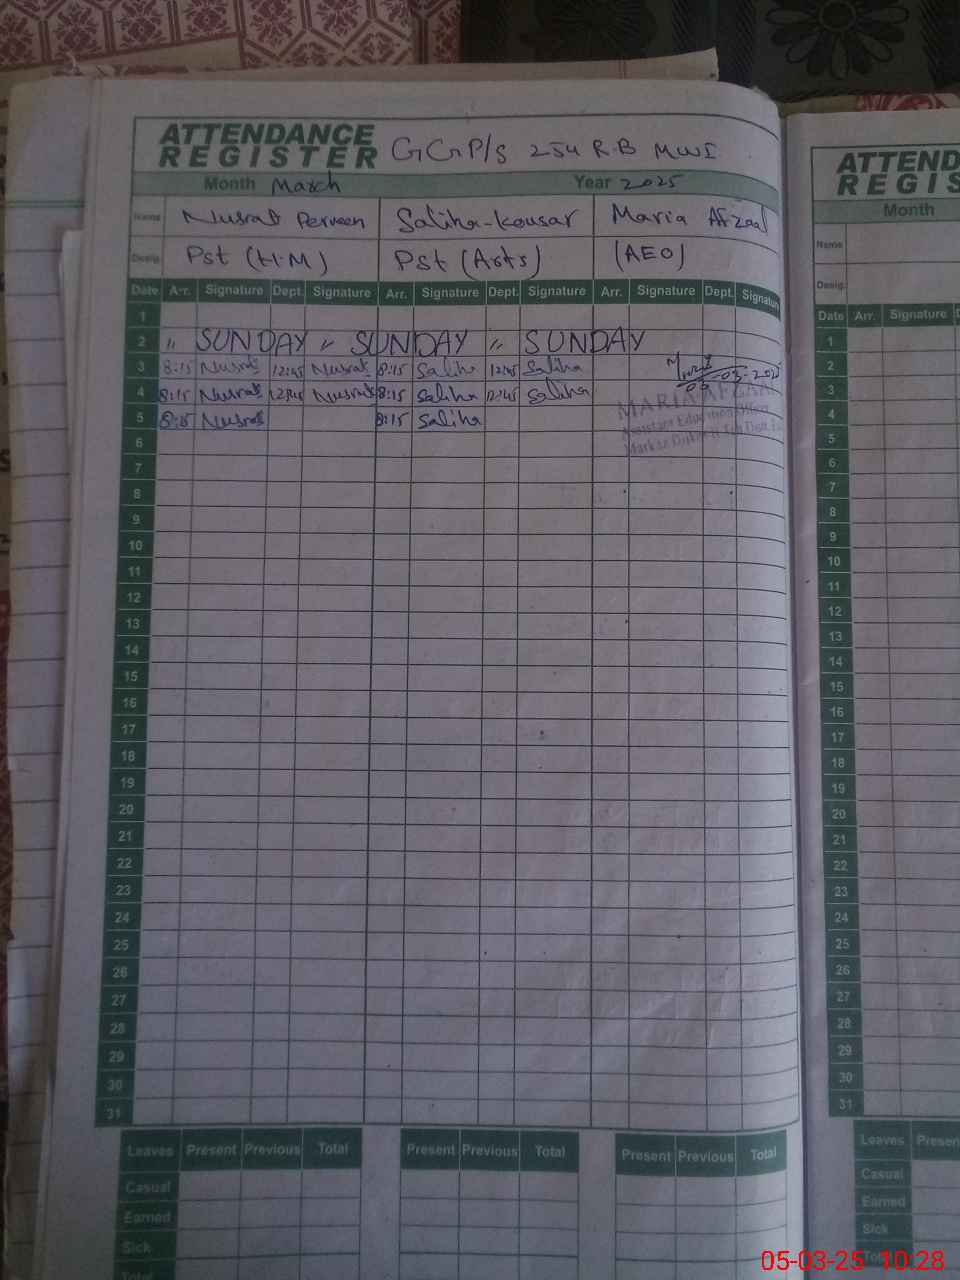 ATTENDANCE REGISTER GGP/S 254 R.B MWI
Month March Year 2025
Name Nusrat Perveen Saliha-Kousar Maria Afzaal
Desig. Pst (H.M) Pst (Arts) (AEO)
Date Arr. Signature Dept. Signature Arr. Signature Dept. Signature Arr. Signature Dept. Signature
1
2 〃 SUNDAY 〃 SUNDAY 〃 SUNDAY
3 8:15 Nusrat 12:45 Nusrat 8:15 Saliha 12:45 Saliha 03-03-2025
4 8:15 Nusrat 12:45 Nusrat 8:15 Saliha 12:45 Saliha MARIA AFZAAL
5 8:15 Nusrat 8:15 Saliha Assistant Education Officer
6 Markaz
7
8
9
10
11
12
13
14
15
16
17
18
19
20
21
22
23
24
25
26
27
28
29
30
31
Leaves Present Previous Total Present Previous Total Present Previous Total
Casual
Earned
Sick
Total
ATTEND
REGIS
Month
Name
Desig.
Date Arr. Signature D
1
2
3
4
5
6
7
8
9
10
11
12
13
14
15
16
17
18
19
20
21
22
23
24
25
26
27
28
29
30
31
Leaves Presen
Casual
Earned
Sick
Total
05-03-25 10:28